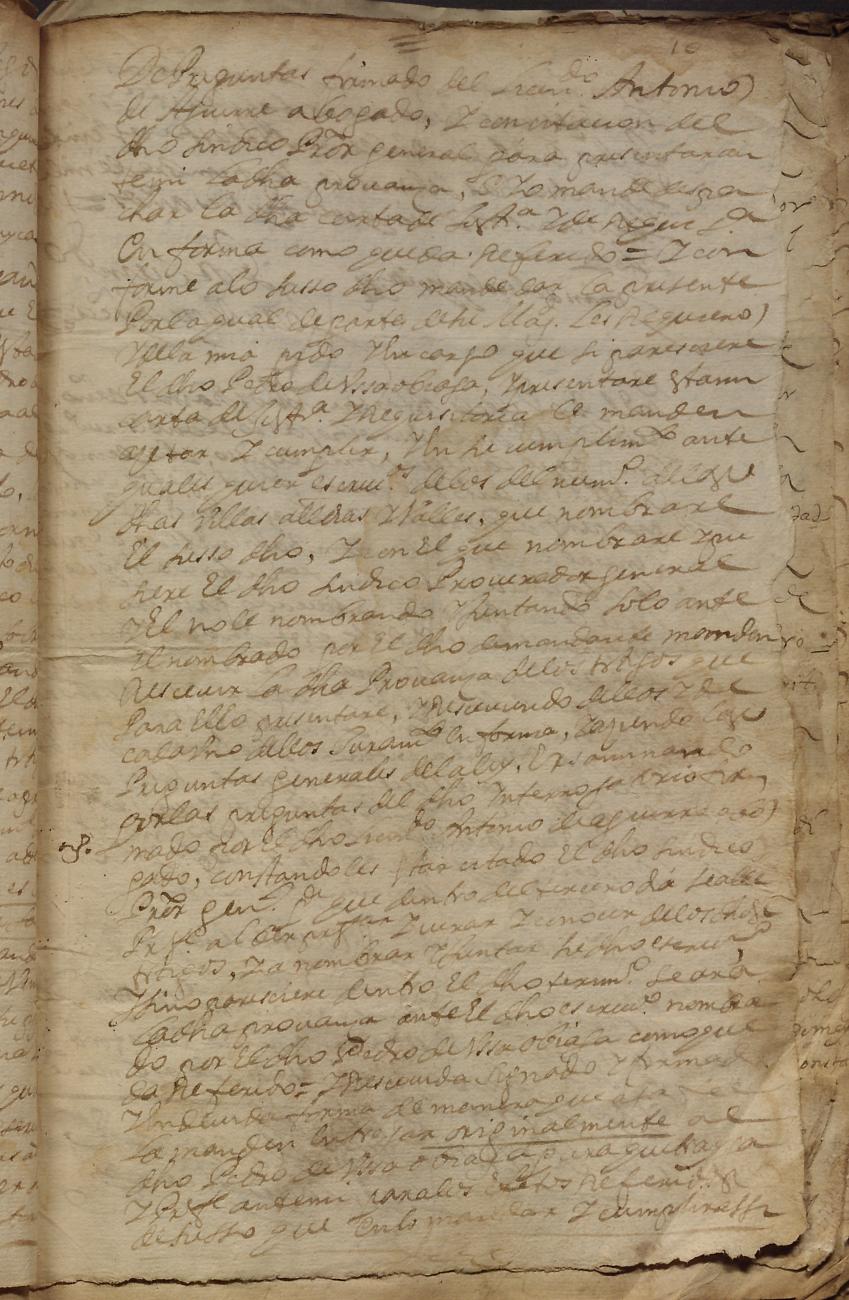 10
De Preguntas firmado del Licendo. Antonio
de Aguirre abogado, Y con citacion del
dho sindico Pror general para presentar an
temi la dha provança, E Yo mande despa
char la dha carta de Justa. Y de Requisa
En forma como queda Referido = Y con
forme alo susso dho mande dar la presente
Por la qual de parte de su Mag. les Requiero
Y dela mia pido Y encargo que si paresciere
El dho Pedro de Ussaobiaga, Y presentare esta mi
carta de Justa. Y Requisitoria la manden
açetar Y cumplir, Y en su cumplimto ante
quales quier escriu.os delos del num.o de las
dhas Villas alldias Y Valles, que nombrare
El susso dho, Y con El que nombrare Y qui
siere El dho sindico Procurador general
Y El no le nombrando Y juntando solo ante
El nombrado por El dho demandante manden
Rescevir la dha Provança delos tesigos que
Para Ello presentare, Y Resciuiendo dellos Y de
cada Uno dellos Juramto En forma, Y aziendo las
Preguntas generales dela ley. Examinando
por las preguntas del dho Interrogatorio fir
mado por El dho Licendo Antonio de aguirre abo
gado, constandoles estar citado El dho sindico
Pror gen.l Pa que dentro del tercero dia se alle
Preste a ler presentar Y jurar Y conocer delos dhos
testigos, Y a nombrar Y juntar su dho escriuo
Y sino paresciere dentro El dho termo. se ara
la dha provança ante El dho escriuo. nombra
do por El dho Pedro de Ussaobiaga como que
da Referido = Y Rescevida signado Y firmada
Y en deuida forma de manera que aga fee
la manden Entregar originalmente al
dho Pedro de Ussaobiaga para que traiga
Y Preste antemi para los Efetos Referidos
de susso que En lo mandar Y cumplir assi